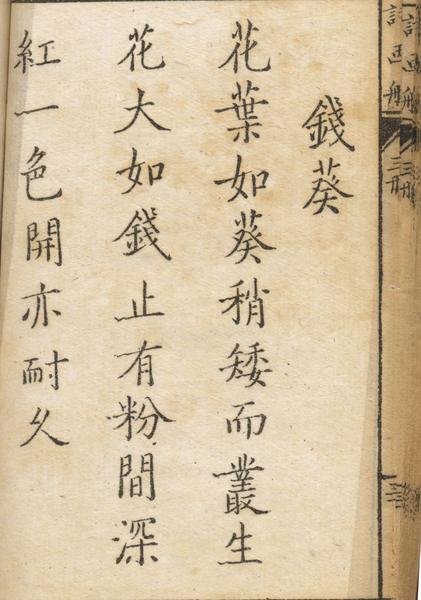 錢葵
花葉如葵稍矮而叢生
花大如錢止有粉間深
紅一色開亦耐久